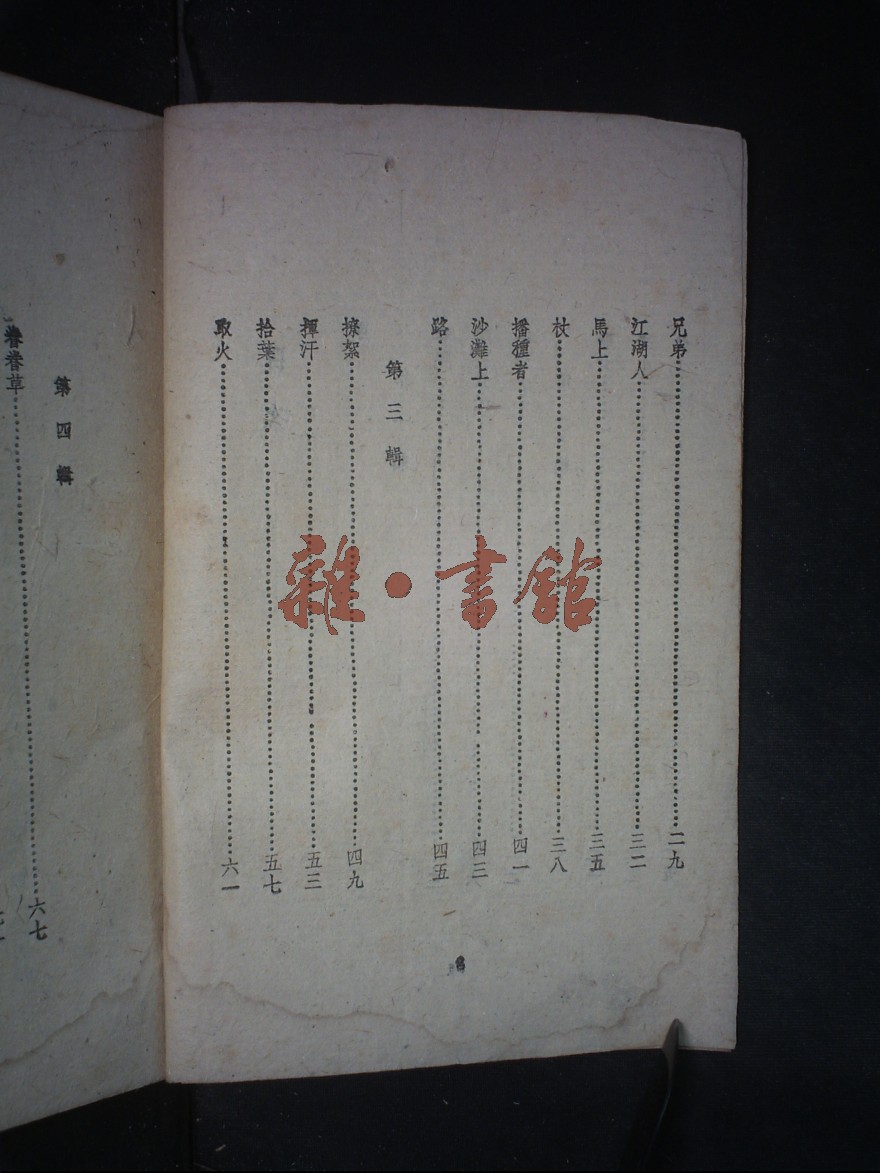 兄弟⋯⋯⋯⋯二九
江湖人⋯⋯⋯⋯三二
馬上⋯⋯⋯⋯三五
杖⋯⋯⋯⋯三八
播種者⋯⋯⋯⋯四一
沙灘上⋯⋯⋯⋯四三
路⋯⋯⋯⋯四五
第三輯
撩絮⋯⋯⋯⋯四九
揮汗⋯⋯⋯⋯五三
拾葉⋯⋯⋯⋯五七
取火⋯⋯⋯⋯六一
第四輯
卷草⋯⋯⋯⋯六七
雜·書館